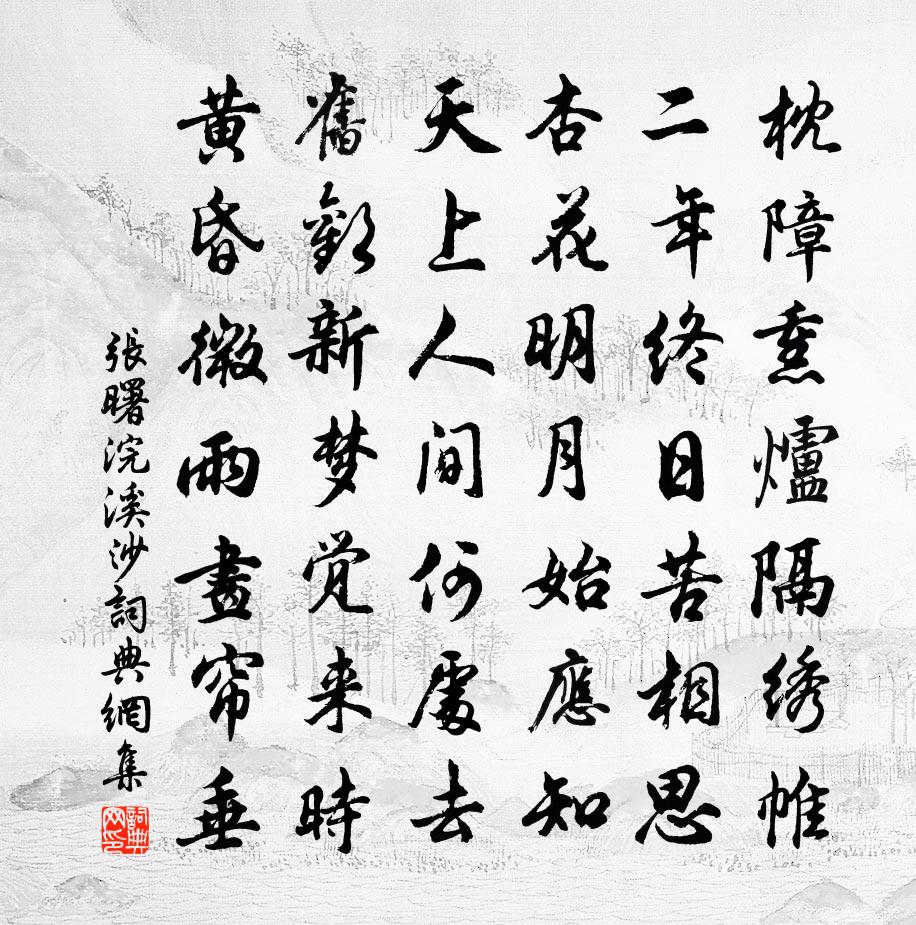 枕障熏爐隔绣帷
二年終日苦相思
杏花明月始應知
天上人間何處去
舊歡新梦觉来時
黄昏微雨畫帘垂
張曙浣溪沙詞典網集
詞典网印